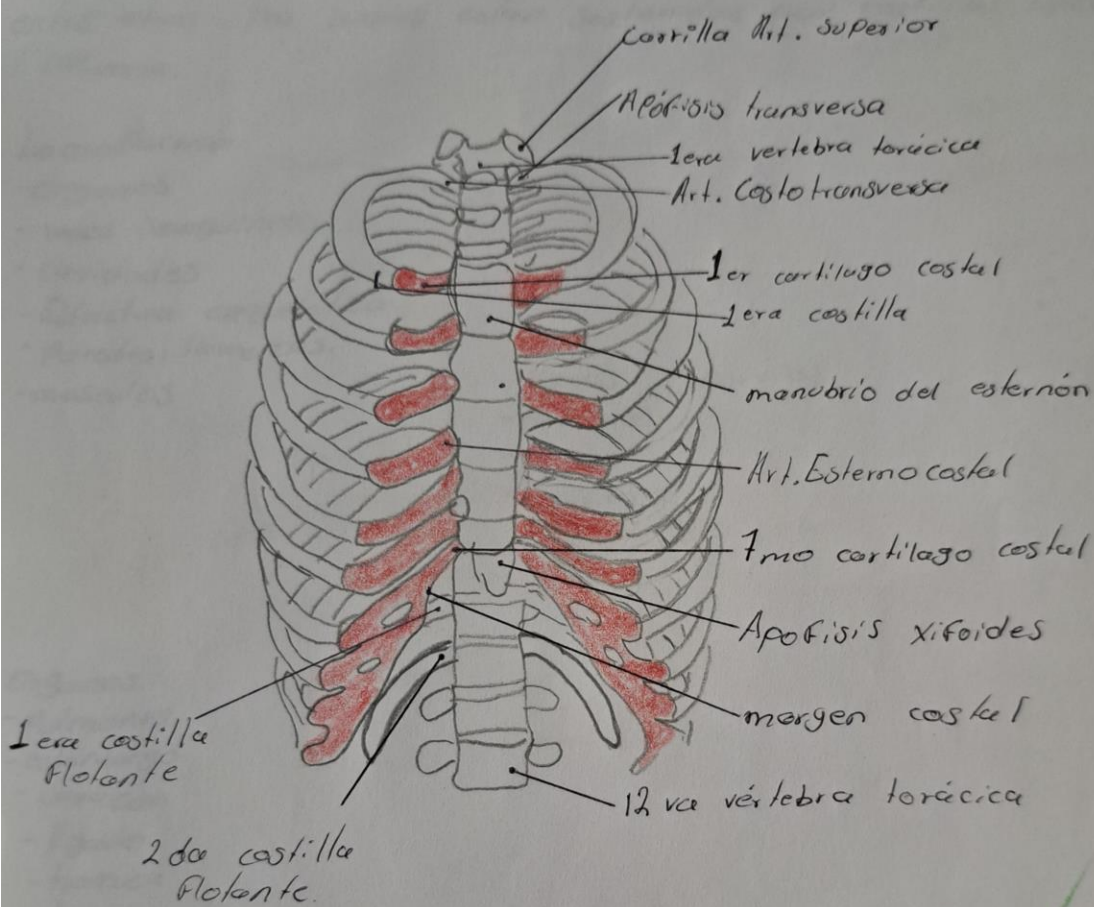 Carrilla Art. Superior
Apófisis transversa
1era vertebra torácica
Art. Costotransversa
1er cartilago costal
1era costilla
manubrio del esternón
Art. Esternocostal
7mo cartilago costal
Apofisis xifoides
margen costal
1era costilla
flotante
12 va vértebra torácica
2da costilla
flotante.